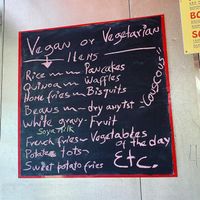 Vegan or Vegetarian
Items
Rice Pancakes
Quinoa Waffles
Home fries Bisquits
Beans dry anytst
White gravy - Fruit
Soya milk
French fries - Vegetables
of the day
Potatoe tots
Sweet potato fries Etc.
Couscous